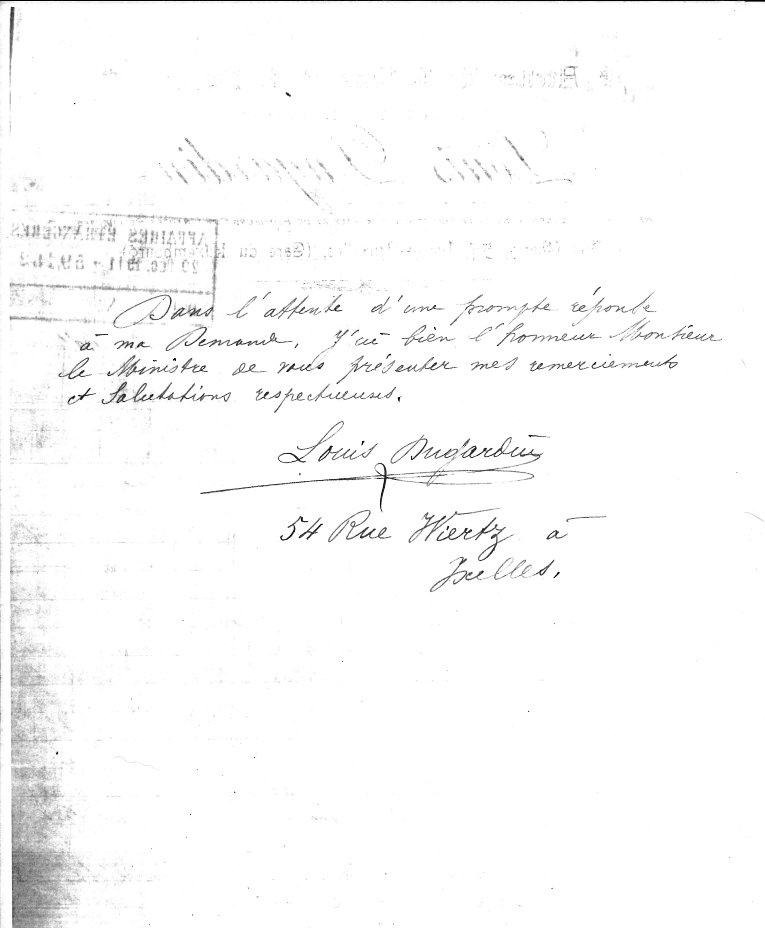 Louis Dujardin
AFFAIRES ÉTRANGÈRES
Dans l'attente d'une prompte réponse
à ma Demande, J'ai bien l'honneur Monsieur
le Ministre de vous présenter mes remerciements
et Salutations respectueuses.
Louis Dujardin
54 Rue Wiertz à
Ixelles.